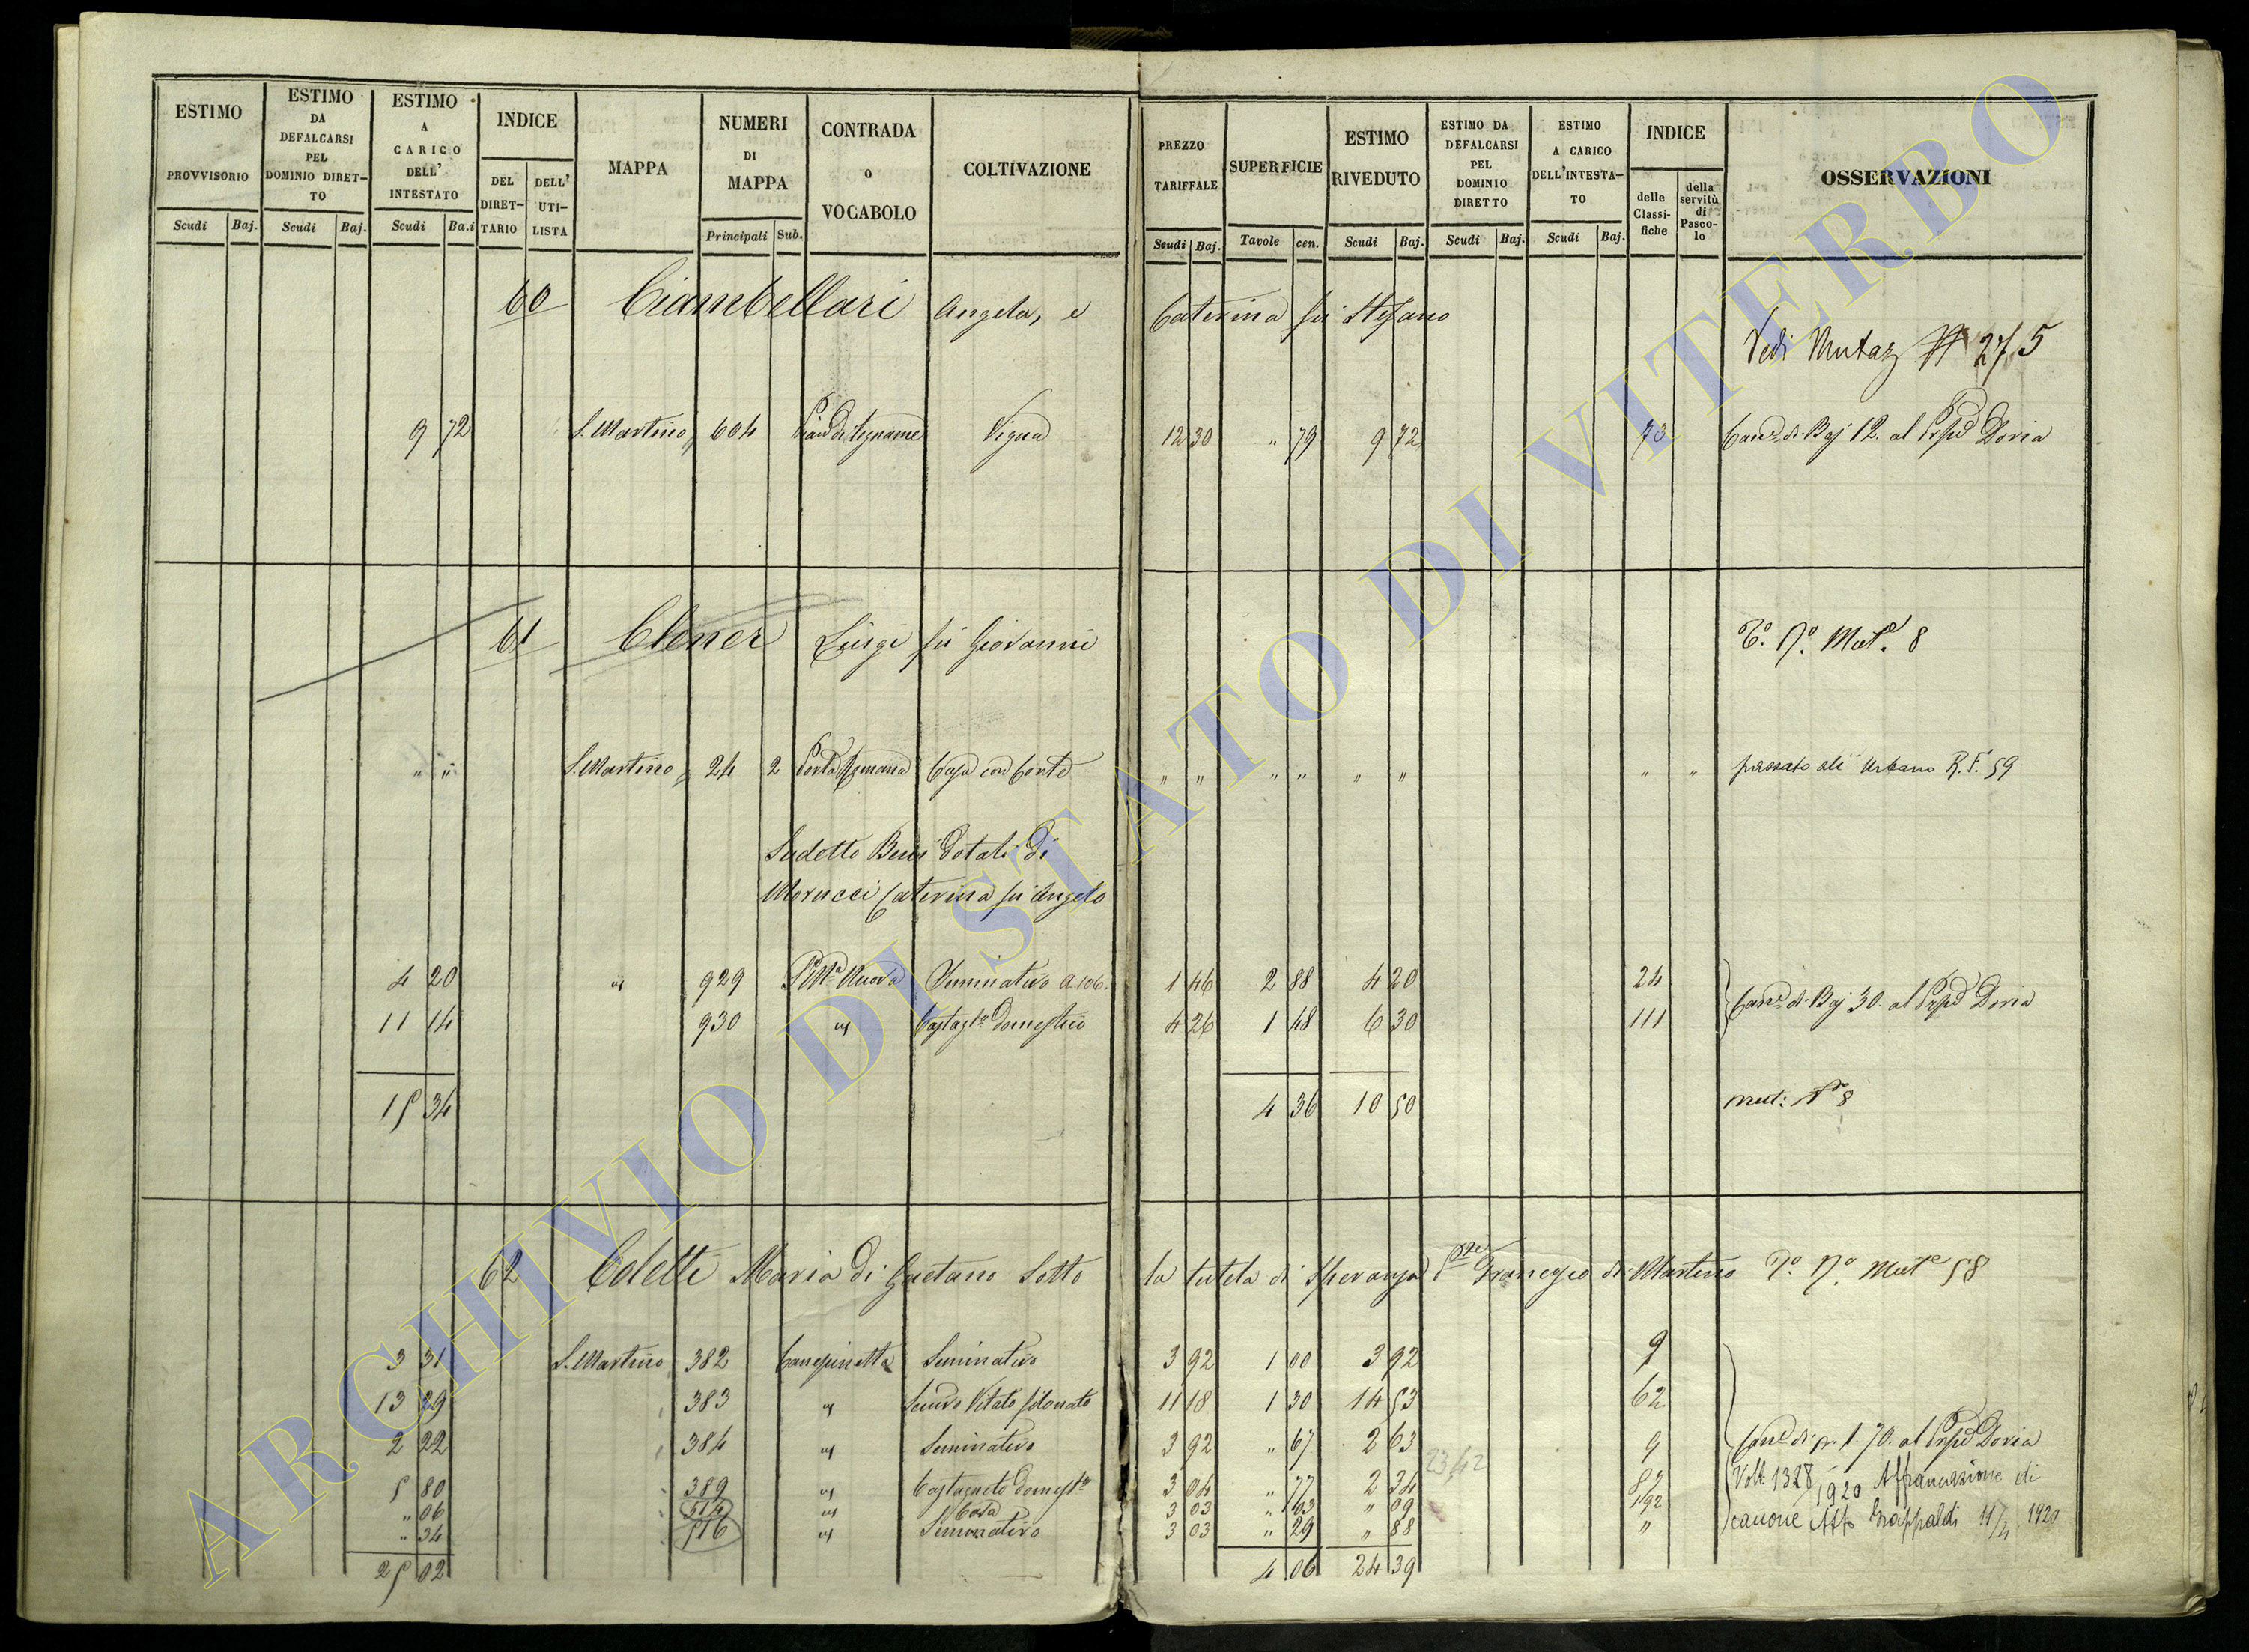 ESTIMO PROVVISORIO
ESTIMO DA DEFALCARSI PEL DOMINIO DIRET-TO
ESTIMO A CARICO DELL' INTESTATO
INDICE
DEL DIRET-TARIO
DELL' UTI-LISTA
MAPPA
NUMERI DI MAPPA
CONTRADA O VOCABOLO
COLTIVAZIONE
PREZZO TARIFFALE
SUPERFICIE
ESTIMO RIVEDUTO
ESTIMO DA DEFALCARSI PEL DOMINIO DIRETTO
ESTIMO A CARICO DELL'INTESTA-TO
INDICE
delle Classi-fiche
della servitù di Pasco-lo
OSSERVAZIONI
Scudi Baj. Scudi Baj. Scudi Ba.i Principali Sub. Scudi Baj. Tavole cen. Scudi Baj. Scudi Baj. Scudi Baj.
60 Ciambellari Angela, e Caterina fu Stefano
Vedi Mutaz N 275
9 72 S. Martino 604 Vigna 12 30 " 79 9 72 73 Can.e di Baj 12. al Doria
61 Clener Luigi fu Giovanni
V.o N.o Mut.e 8
" " S. Martino 24 2 Porta Romana Casa con Corte " " " " " " " " passato all' Urbano R.F. 59
Sudetto Beni Dotali di
Morucci Caterina fu Angelo
4 20 " 929 Nuova Seminativo a.106. 1 46 2 88 4 20 24
11 14 930 " Castag.to Domestico 4 26 1 48 6 30 111 Can.e di Baj 30. al Doria
15 34 4 36 10 50 mut: N 8
62 Coletti Maria di Gaetano Sotto la tutela di Speranza Francesco di Martino V.o N.o Mut.e 58
3 31 S. Martino 382 Canepinetta Seminativo 3 92 1 00 3 92 9
13 29 383 " Semvo Vitato filonato 11 18 1 30 14 53 62
2 22 384 " Seminativo 3 92 " 67 2 63 9 Can.e di 1. 70. al Doria
23,42
5 80 389 " Castagneto Domest.o 3 04 " 77 2 34 82 Volt. 1328/1920 Affrancazione di
" 06 514 " 3 03 " 03 " 09 192 canone Atto Grappaldi 1920
" 34 516 " Seminativo 3 03 " 29 " 88 "
25 02 4 06 24 39
ARCHIVIO DI STATO DI VITERBO